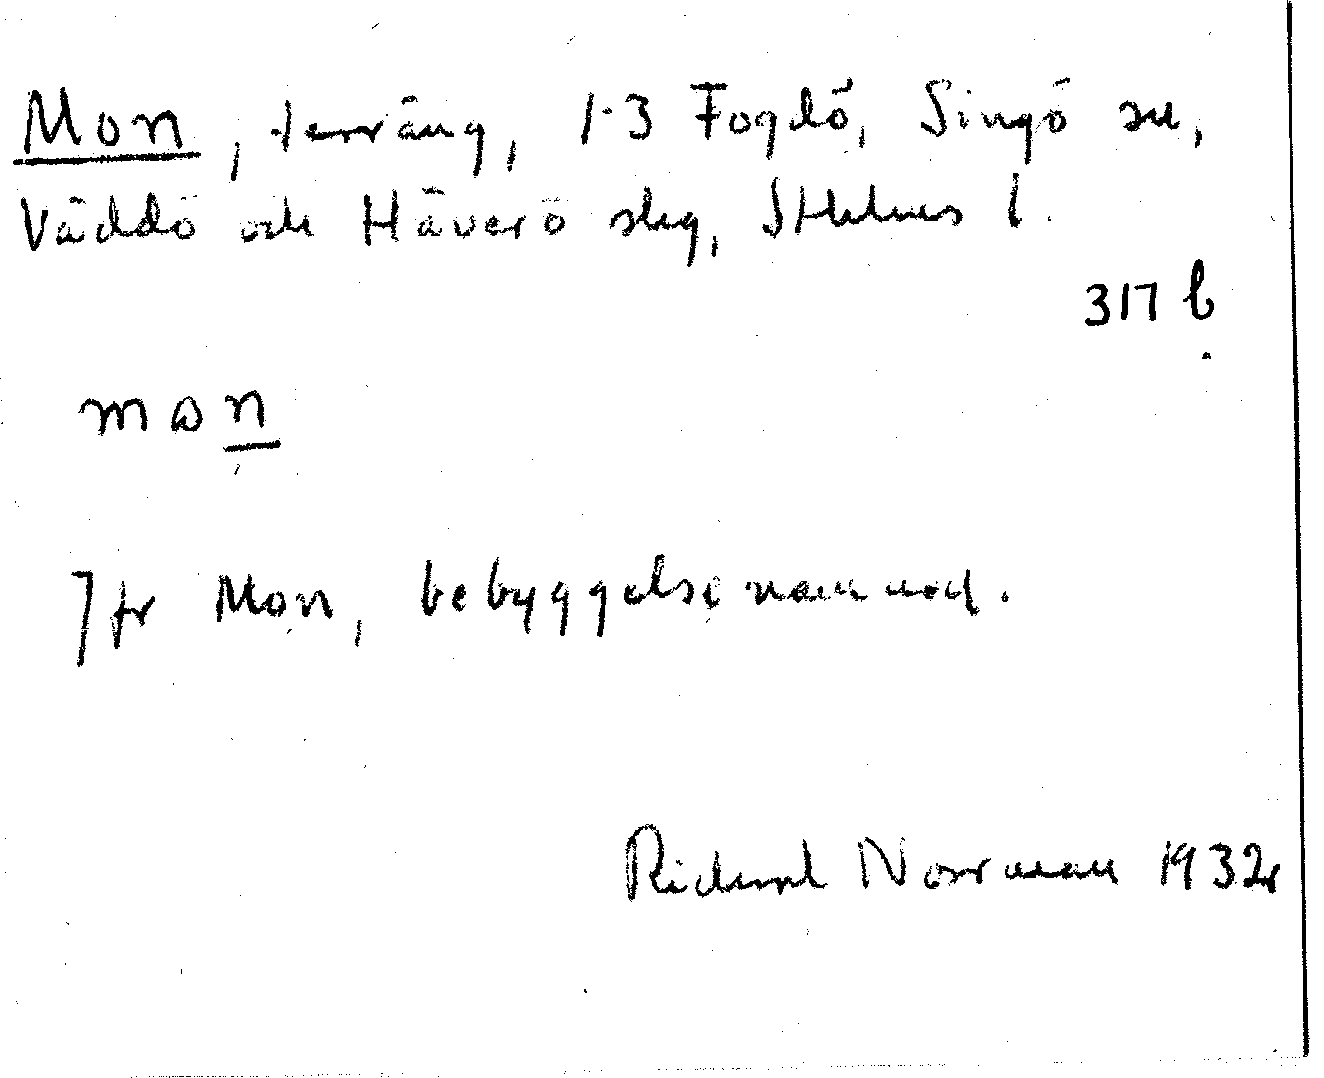 Mon, terräng, 1-3 Fogdö, Singö sn,
Väddö och Häverö slg, Sthlms l.
317 b
mɷn
Jfr Mon, bebyggelsenamned.
Rickard Norrman 1932